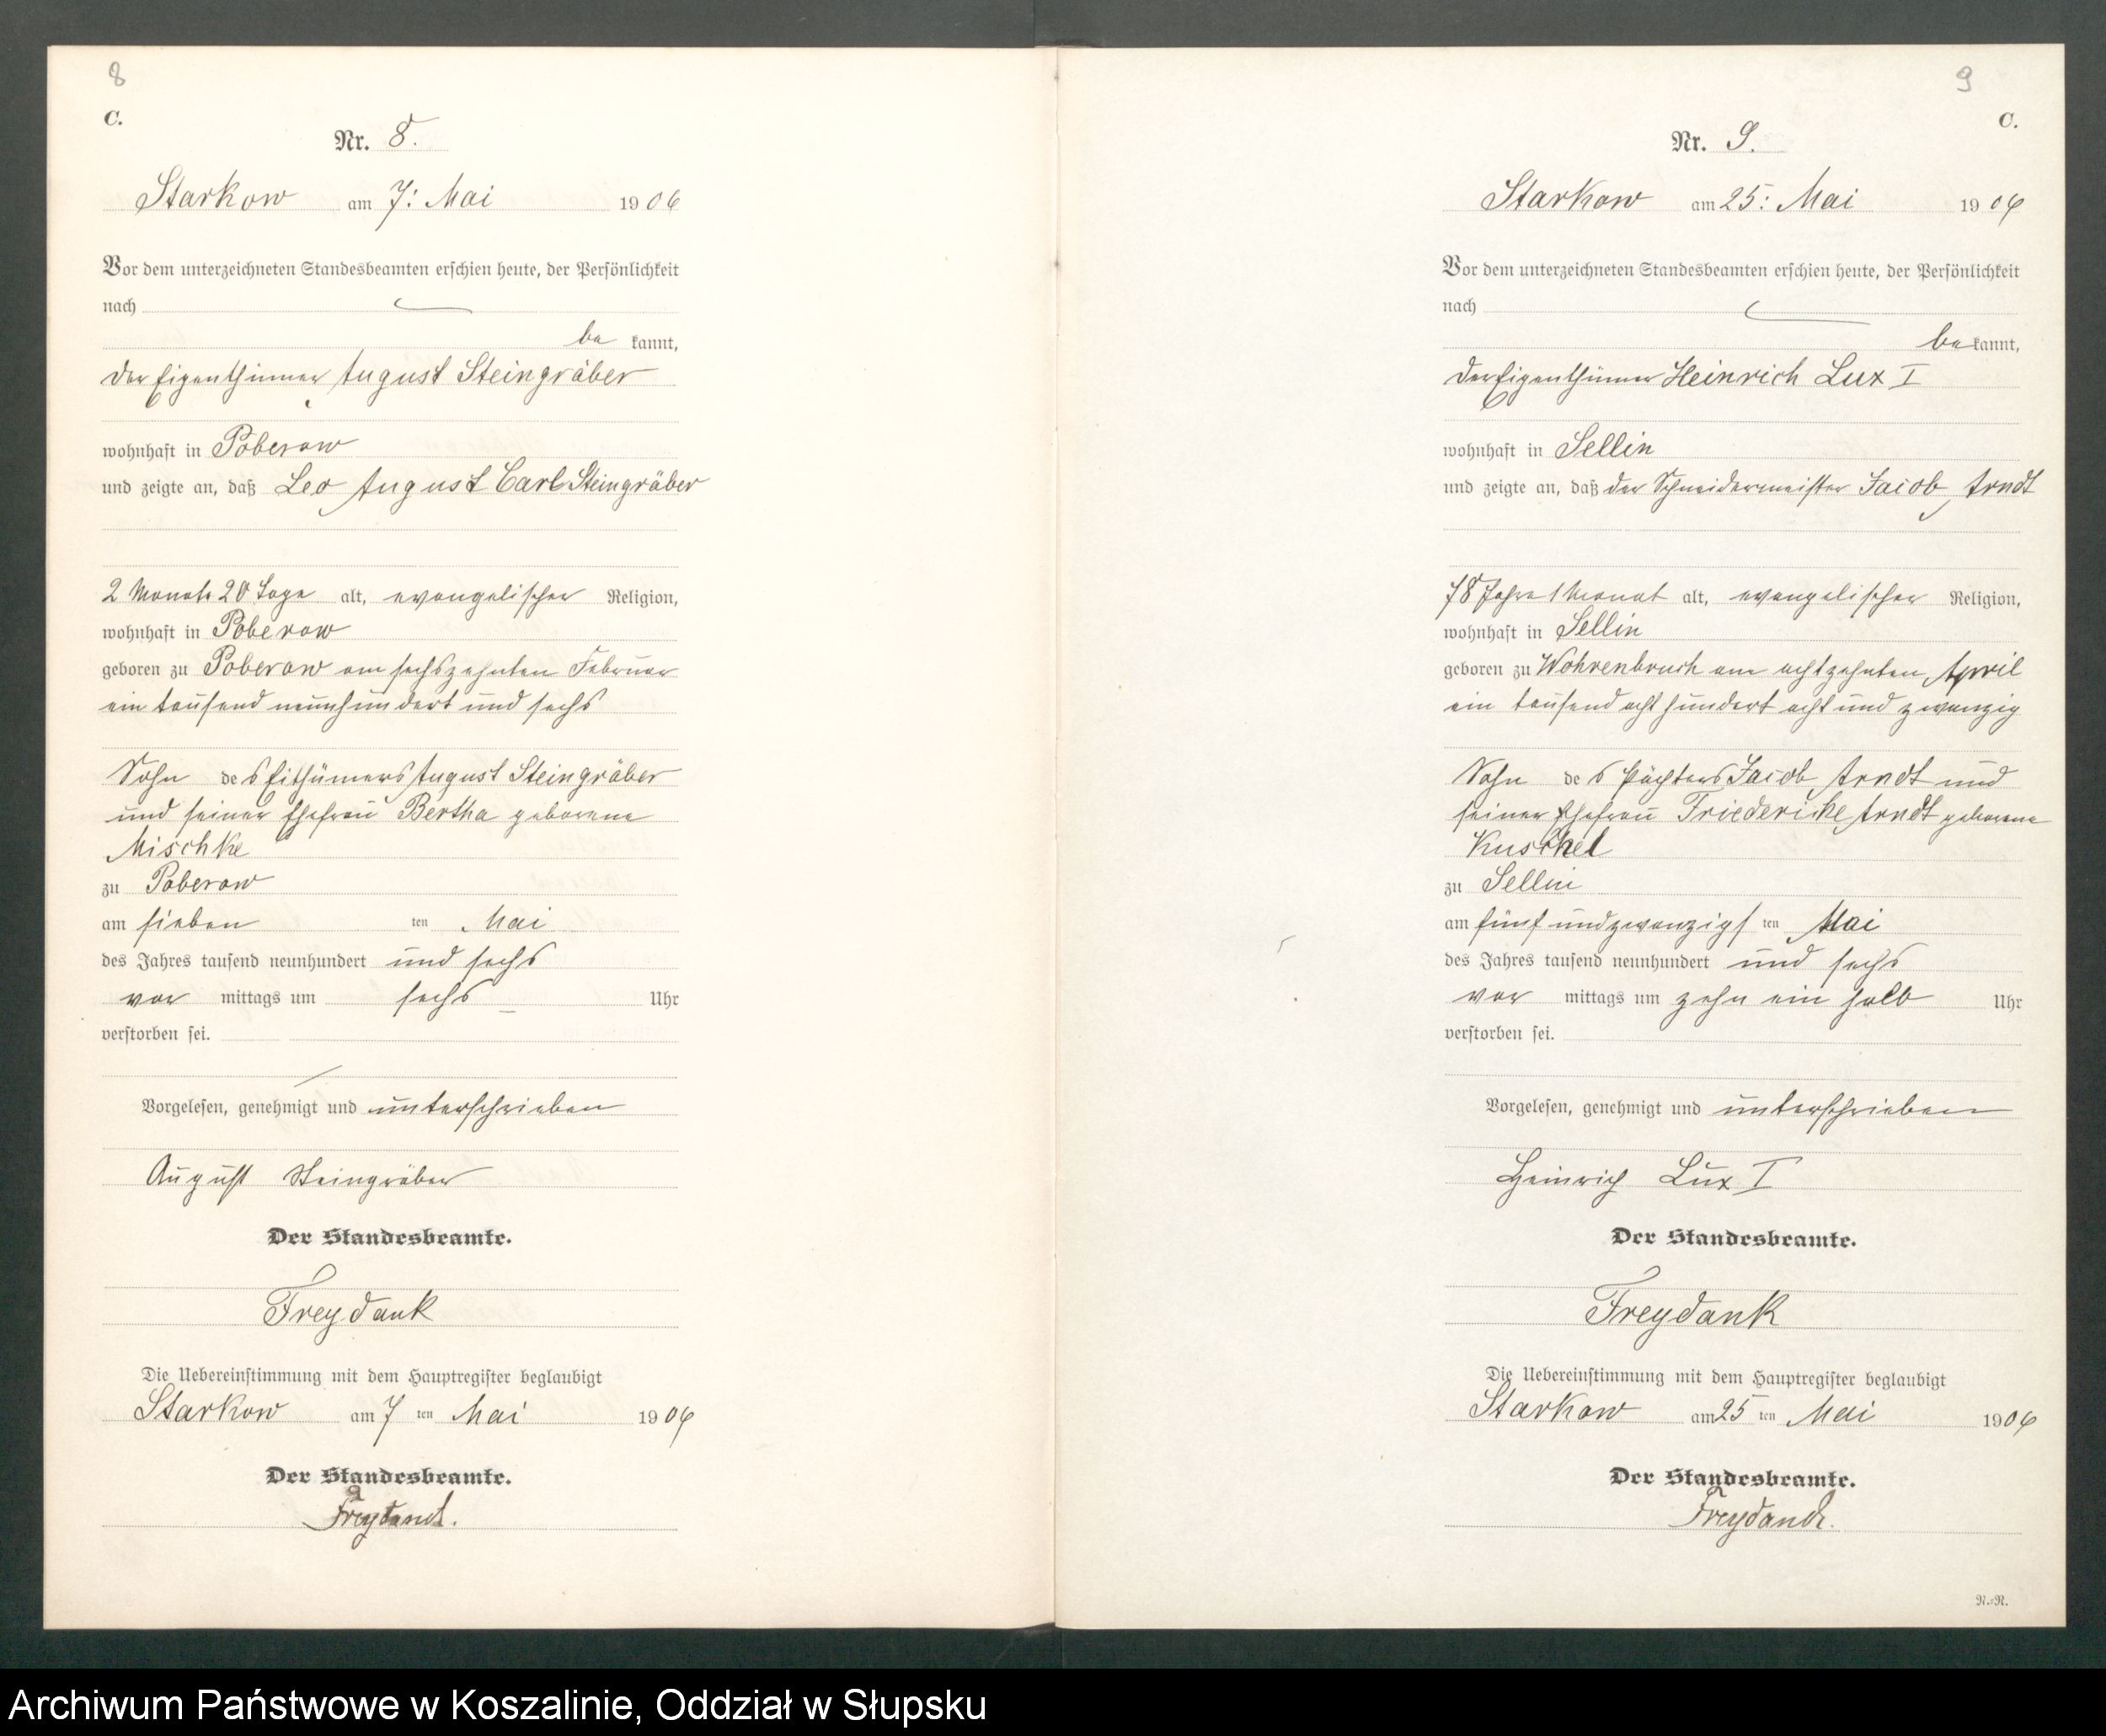 8
C.
Nr. 8.
Starkow am 7: Mai 1906
Vor dem unterzeichneten Standesbeamten erschien heute, der Persönlichkeit
nach
be kannt,
der Eigenthümer August Steingräber
wohnhaft in Poberow
und zeigte an, daß Leo August Carl Steingräber
2 Monate 20 Tage alt, evangelischer Religion,
wohnhaft in Poberow
geboren zu Poberow am sechszehnten Februar
ein tausend neunhundert und sechs
Sohn des Eithümers August Steingräber
und seiner Ehefrau Bertha geborene
Mischke
zu Poberow
am sieben ten Mai
des Jahres tausend neunhundert und sechs
vor mittags um sechs Uhr
verstorben sei.
Vorgelesen, genehmigt und unterschrieben
August Steingräber
Der Standesbeamte.
Freydank
Die Uebereinstimmung mit dem Hauptregister beglaubigt
Starkow am 7 ten Mai 1906
Der Standesbeamte.
Freydank.
9
C.
Nr. 9.
Starkow am 25: Mai 1906
Vor dem unterzeichneten Standesbeamten erschien heute, der Persönlichkeit
nach
be kannt,
der Eigenthümer Heinrich Lux I
wohnhaft in Sellin
und zeigte an, daß der Schneidermeister Jacob Arndt
78 Jahre 1 Monat alt, evangelischer Religion,
wohnhaft in Sellin
geboren zu Wohrenbruch am achtzehnten April
ein tausend acht hundert acht und zwanzig
Sohn des Pächters Jacob Arndt und
seiner Ehefrau Friedericke Arndt geborene
Kuschel
zu Sellin
am fünf und zwanzigs ten Mai
des Jahres tausend neunhundert und sechs
vor mittags um zehn ein halb Uhr
verstorben sei.
Vorgelesen, genehmigt und unterschrieben
Heinrich Lux I
Der Standesbeamte.
Freydank
Die Uebereinstimmung mit dem Hauptregister beglaubigt
Starkow am 25 ten Mai 1906
Der Standesbeamte.
Freydank.
N.=N.
Archiwum Państwowe w Koszalinie, Oddział w Słupsku